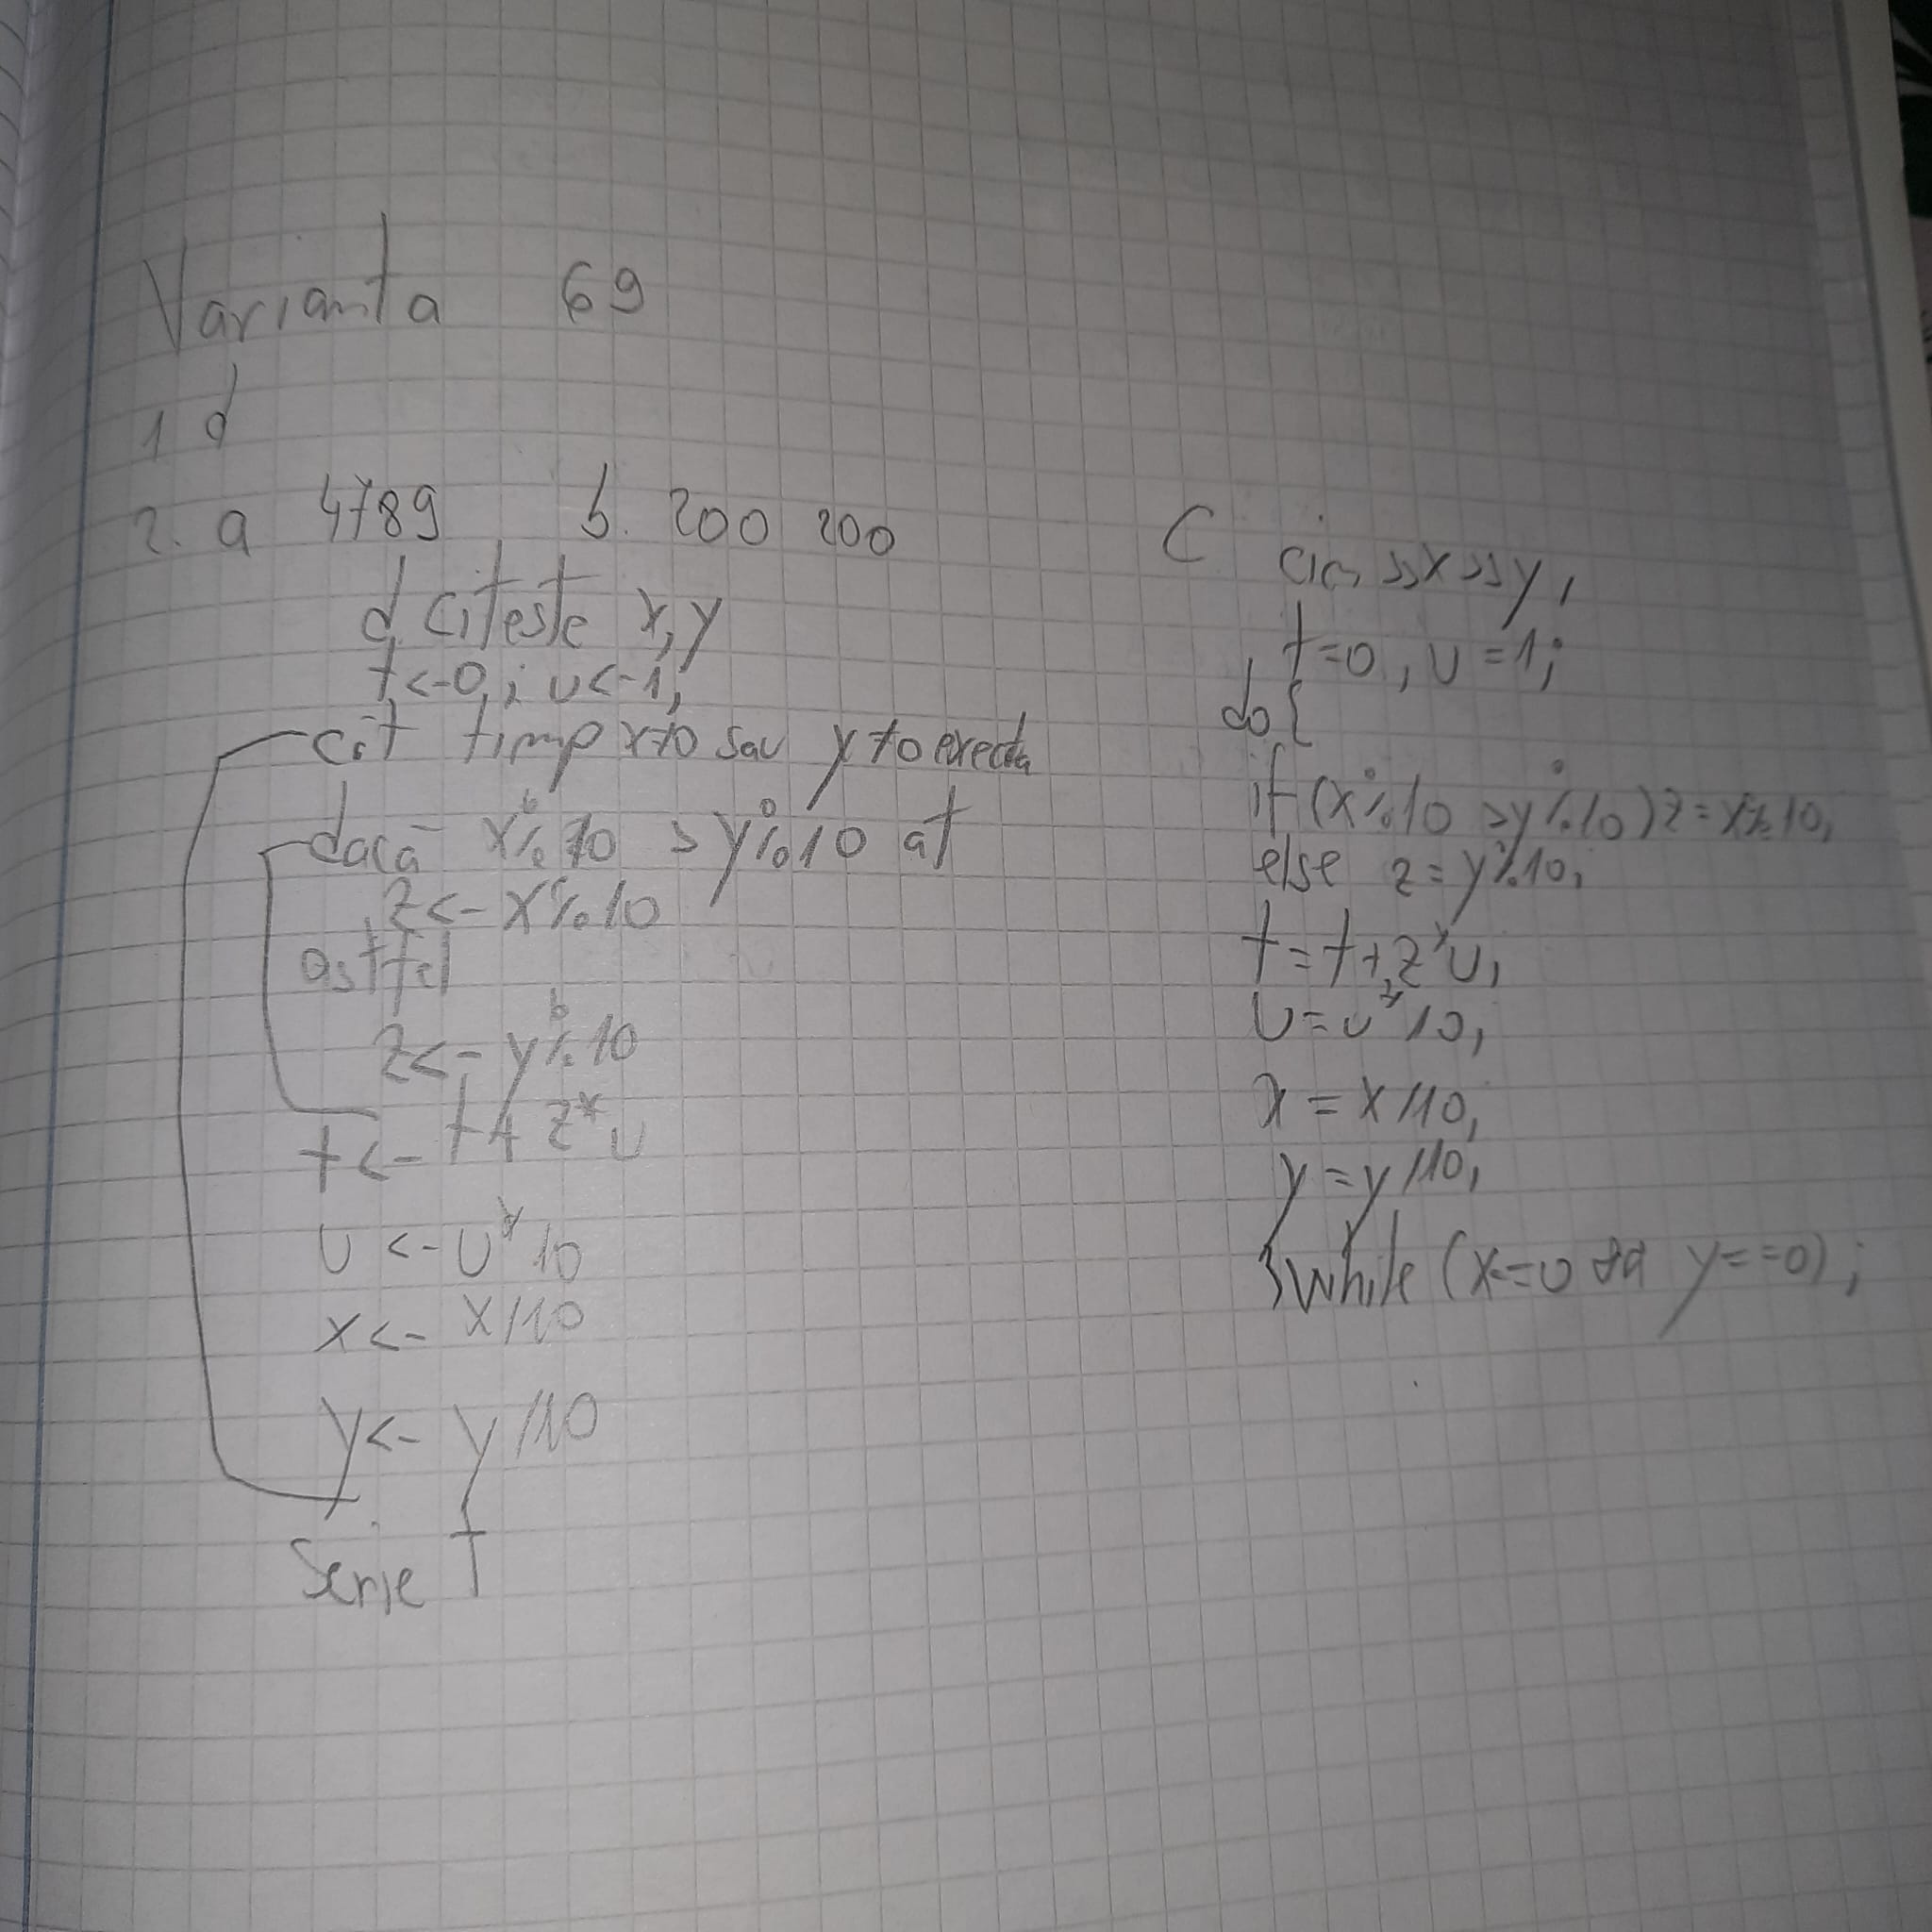 Varianta 69
1 d
2. a 4789 b. 200 200
d. citeste x, y
t<-0,; u<-1;
cât timp x≠0 sau y≠0 executa
dacă x%10 > y%10 at
z<- x%10
astfel
z<- y%10
t<- t+z*u
u<-u*10
x<- x/10
y<- y/10
Scrie T
C cin >>x>>y;
t=0, u=1;
do{
if(x%10 >y%10)z=x%10;
else z=y%10;
t=t+z*u;
u=u*10;
x=x/10;
y=y/10;
}while(x==0 && y==0);